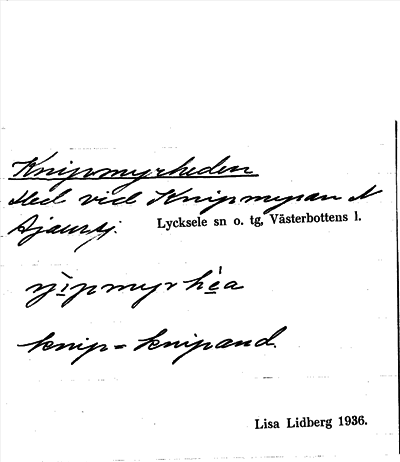 Knipmyrheden
Hed vid Knipmyran N
Ajaursj. Lycksele sn o. tg, Västerbottens l.
knip = knipand.
Lisa Lidberg 1936.